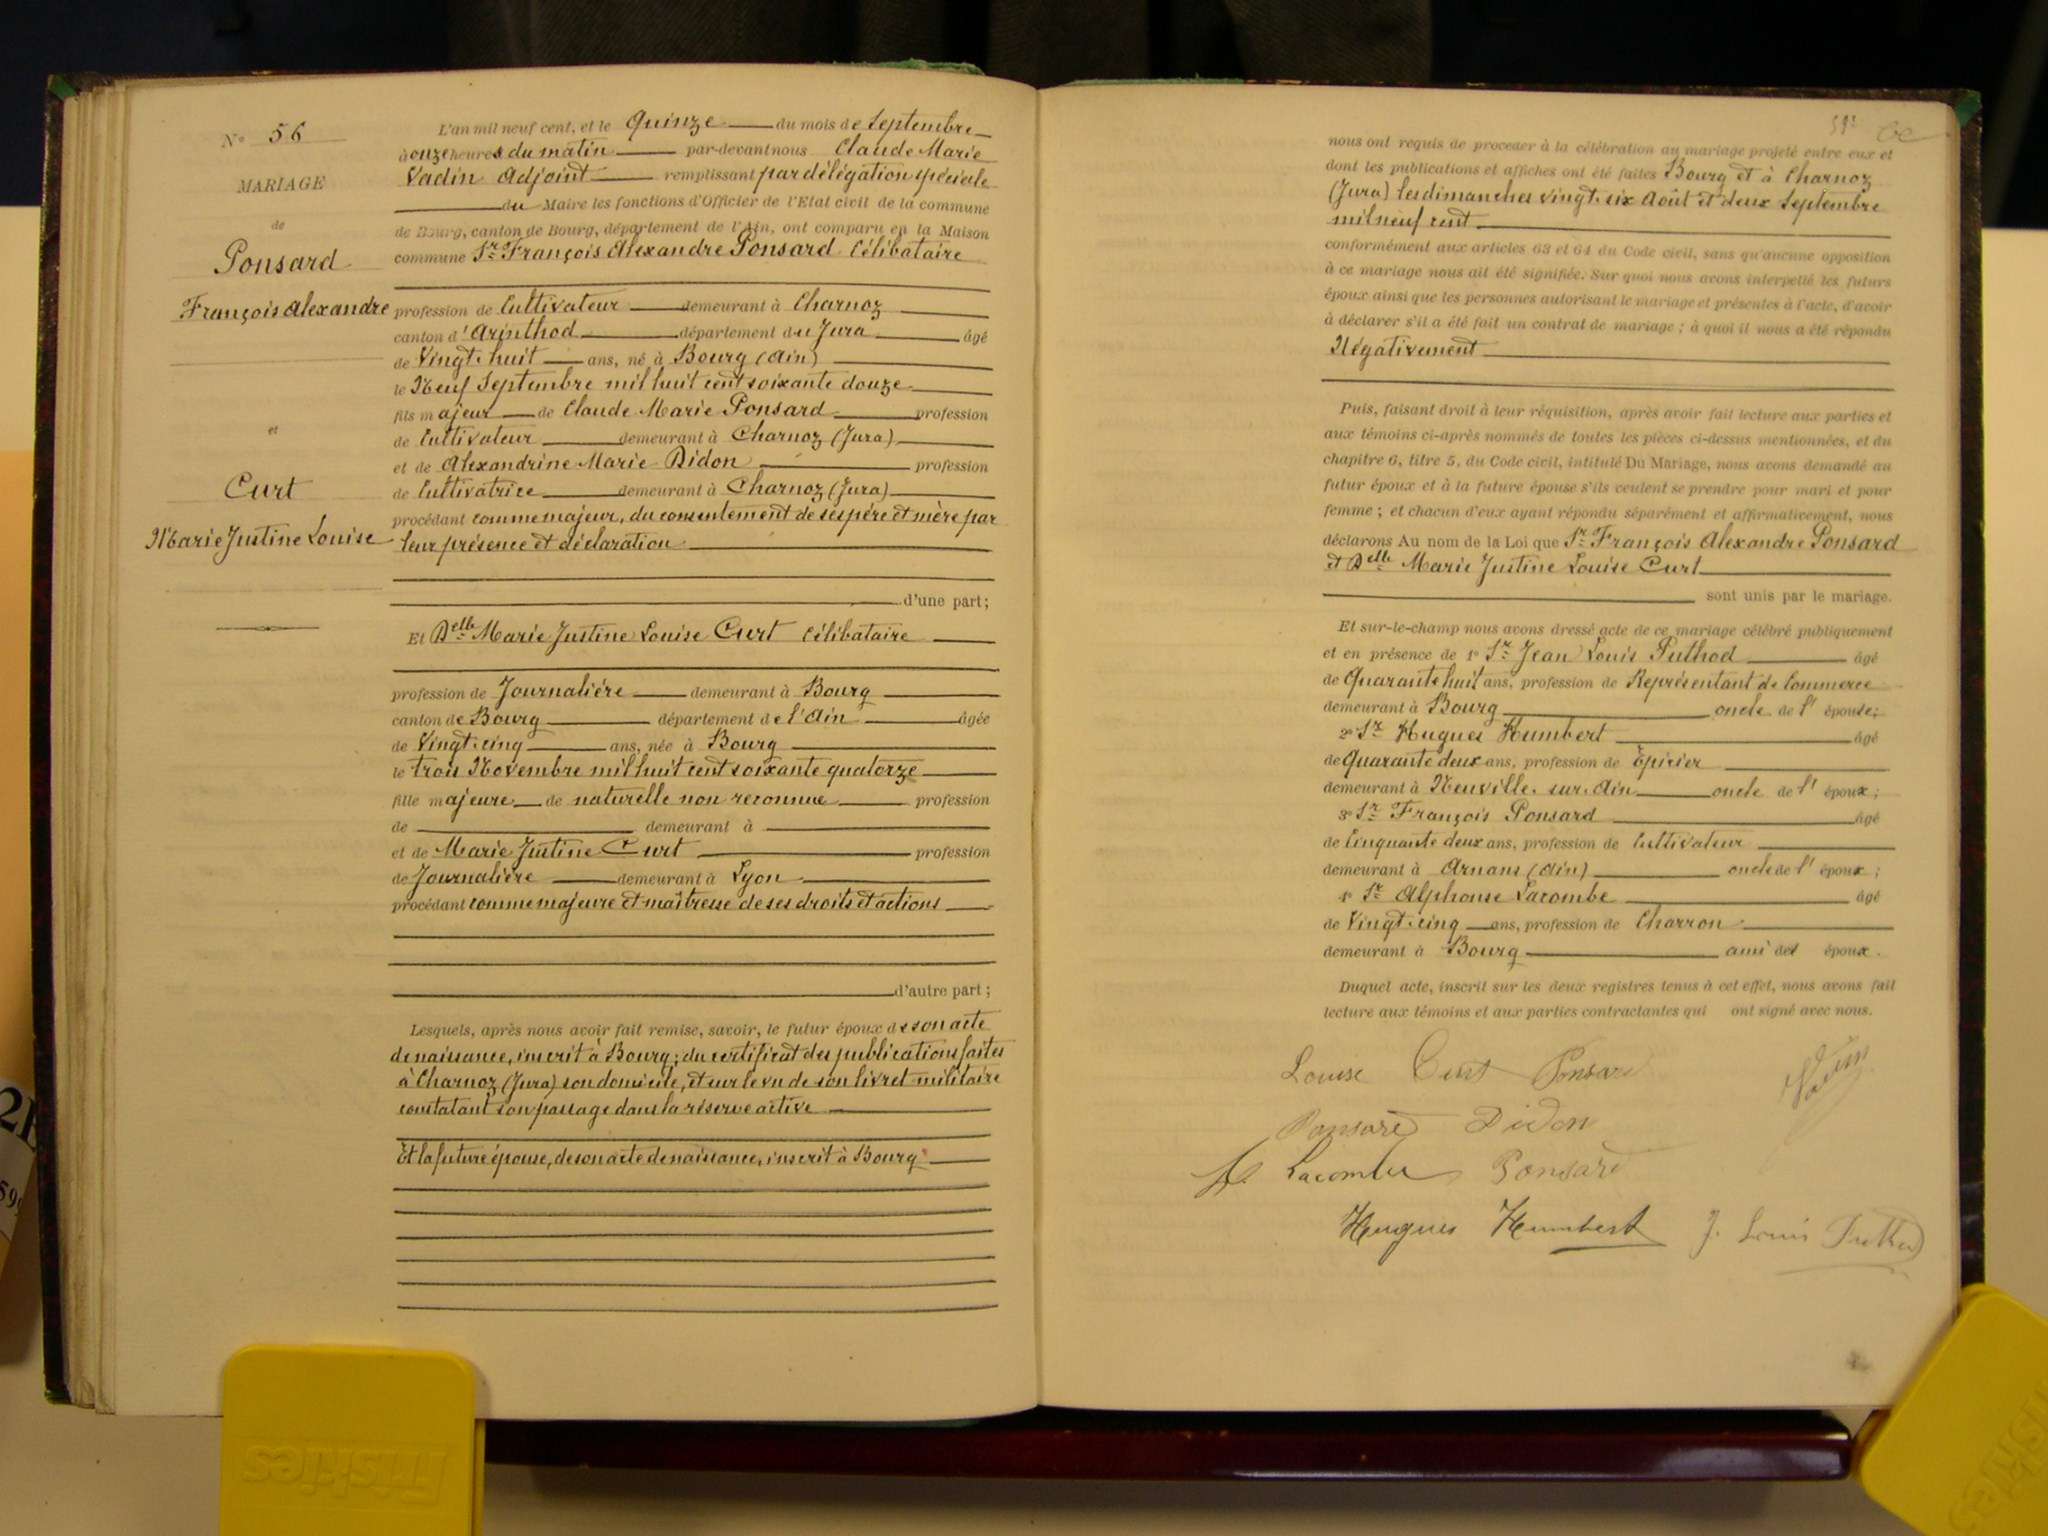 N° 56
MARIAGE
de
Ponsard
François Alexandre
et
Curt
Marie Justine Louise
L'an mil neuf cent, et le Quinze du mois de Septembre
à onze heures du matin par-devant nous Claude Marie
Vadin Adjoint remplissant par délégation spéciale
du Maire les fonctions d'Officier de l'Etat civil de la commune
de Bourg, canton de Bourg, département de l'Ain, ont comparu en la Maison
commune Sr François Alexandre Ponsard Célibataire
profession de Cultivateur demeurant à Charnoz
canton d'Arinthod département du Jura âgé
de Vingt-huit ans, né à Bourg (Ain)
le Neuf Septembre mil huit cent soixante douze
fils majeur de Claude Marie Ponsard profession
de Cultivateur demeurant à Charnoz (Jura)
et de Alexandrine Marie Didon profession
de Cultivatrice demeurant à Charnoz (Jura)
procédant comme majeur, du consentement de ses père et mère par
leur présence et déclaration
d'une part;
Et Delle Marie Justine Louise Curt Célibataire
profession de Journalière demeurant à Bourg
canton de Bourg département de l'Ain âgée
de Vingt-cinq ans, née à Bourg
le trois Novembre mil huit cent soixante quatorze
fille majeure de naturelle non reconnue profession
de demeurant à
et de Marie Justine Curt profession
de Journalière demeurant à Lyon
procédant comme majeure et maîtresse de ses droits et actions
d'autre part;
Lesquels, après nous avoir fait remise, savoir, le futur époux de son acte
de naissance, inscrit à Bourg; du certificat des publications faites
à Charnoz (Jura) son domicile, et sur le vu de son livret militaire
constatant son passage dans la réserve active
Et la future épouse, de son acte de naissance, inscrit à Bourg
nous ont requis de procéder à la célébration du mariage projeté entre eux et
dont les publications et affiches ont été faites Bourg et à Charnoz
(Jura) les dimanches vingt-six Août et deux Septembre
mil neuf cent
conformément aux articles 63 et 64 du Code civil, sans qu'aucune opposition
à ce mariage nous ait été signifiée. Sur quoi nous avons interpellé les futurs
époux ainsi que les personnes autorisant le mariage et présentes à l'acte, d'avoir
à déclarer s'il a été fait un contrat de mariage; à quoi il nous a été répondu
Négativement
Puis, faisant droit à leur réquisition, après avoir fait lecture aux parties et
aux témoins ci-après nommés de toutes les pièces ci-dessus mentionnées, et du
chapitre 6, titre 5, du Code civil, intitulé Du Mariage, nous avons demandé au
futur époux et à la future épouse s'ils veulent se prendre pour mari et pour
femme; et chacun d'eux ayant répondu séparément et affirmativement, nous
déclarons Au nom de la Loi que Sr François Alexandre Ponsard
et Delle Marie Justine Louise Curt
sont unis par le mariage.
Et sur-le-champ nous avons dressé acte de ce mariage célébré publiquement
et en présence de 1° Sr Jean Louis Puthod âgé
de Quarante huit ans, profession de Représentant de Commerce
demeurant à Bourg oncle de l'épouse;
2° Sr Hugues Humbert âgé
de Quarante deux ans, profession de Épicier
demeurant à Neuville-sur-Ain oncle de l'époux;
3° Sr François Ponsard âgé
de Cinquante deux ans, profession de Cultivateur
demeurant à Arnans (Ain) oncle de l'époux;
4° Sr Alphonse Lacombe âgé
de Vingt-cinq ans, profession de Charron
demeurant à Bourg ami des époux.
Duquel acte, inscrit sur les deux registres tenus à cet effet, nous avons fait
lecture aux témoins et aux parties contractantes qui ont signé avec nous.
Louise Curt Ponsard
Vadin
Ponsard Didon
A. Lacombe Ponsard
Hugues Humbert J. Louis Puthod
Friskies